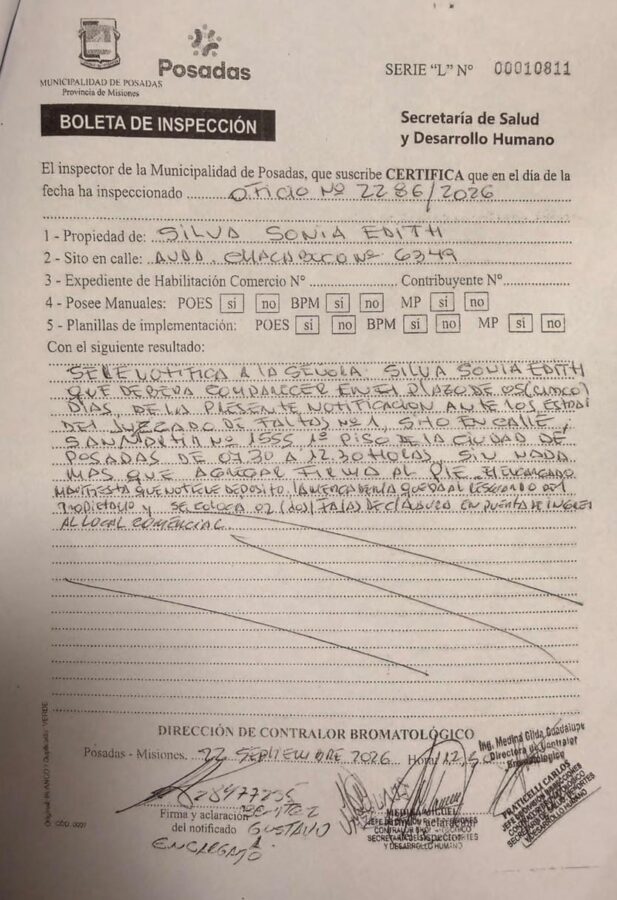 MUNICIPALIDAD DE POSADAS
Provincia de Misiones
Posadas
SERIE "L" Nº 00010811
BOLETA DE INSPECCIÓN
Secretaría de Salud
y Desarrollo Humano
El inspector de la Municipalidad de Posadas, que suscribe CERTIFICA que en el día de la
fecha ha inspeccionado OFICIO Nº 2286/2026
1 - Propiedad de: SILVA SONIA EDITH
2 - Sito en calle: AVDA. CHACABUCO Nº 6349
3 - Expediente de Habilitación Comercio Nº Contribuyente Nº
4 - Posee Manuales: POES si no BPM si no MP si no
5 - Planillas de implementación: POES si no BPM si no MP si no
Con el siguiente resultado:
SE LE NOTIFICA A LA SEÑORA: SILVA SONIA EDITH
QUE DEBERA COMPARECER EN EL PLAZO DE 05 (CINCO)
DIAS, DE LA PRESENTE NOTIFICACION ANTE LOS ESTRADOS
DEL JUZGADO DE FALTAS Nº 1, SITO EN CALLE,
SAN MARTIN Nº 1555, 1º PISO DE LA CIUDAD DE
POSADAS DE 07.30 A 12.30 HORAS, SIN NADA
MAS QUE AGREGAR FIRMA AL PIE. El ENCARGADO
MANIFIESTA QUE NO TIENE DEPOSITO. LA MERCADERIA QUEDA AL RESGUARDO DEL
PROPIETARIO Y SE COLOCA 02 (DOS) FAJAS DE CLAUSURA EN PUERTA DE INGRESO
AL LOCAL COMERCIAL
DIRECCIÓN DE CONTRALOR BROMATOLÓGICO
Posadas - Misiones. 22 SEPTIEMBRE 2026 Hora
Ing. Medina Gilda Guadalupe
Directora de Contralor
Bromatológico
28477235
Firma y aclaración BENITEZ
del notificado GUSTAVO
ENCARGADO
FRATICELLI CARLOS
Original: BLANCO / Duplicado: VERDE